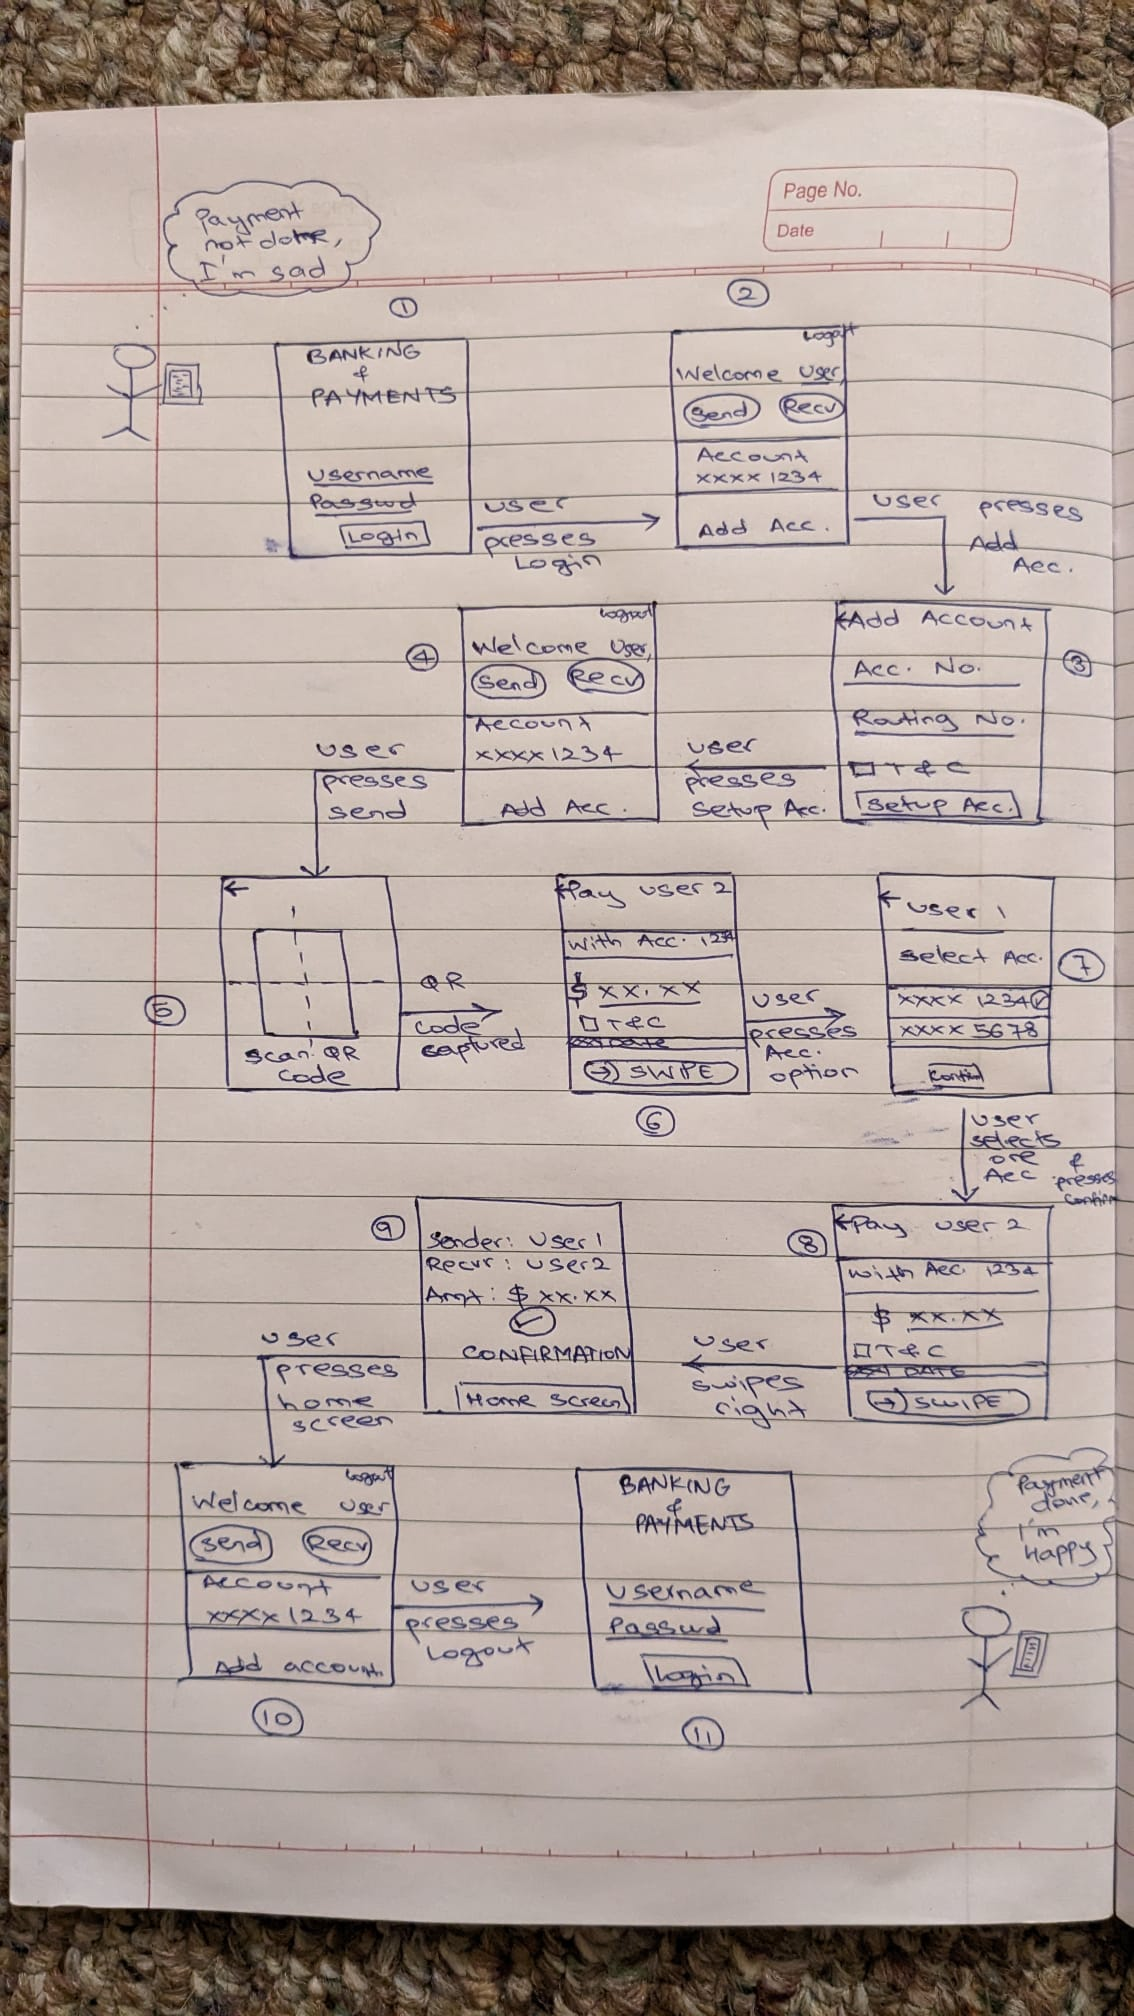 Page No.
Date
Payment
not done,
I'm sad
①
BANKING
&
PAYMENTS
Username
Passwd
Login
user
presses
Login
②
Logout
Welcome User,
Send Recv
Account
xxxx 1234
Add Acc.
user presses
Add
Acc.
③
←Add Account
Acc. No.
Routing No.
□ T & C
Setup Acc.
user
presses
Setup Acc.
④
Logout
Welcome User,
Send Recv
Account
xxxx 1234
Add Acc.
user
presses
send
⑤
←
Scan QR
code
QR
code
captured
⑥
←Pay user 2
With Acc. 1234
$ xx.xx
□ T&C
→ SWIPE
user
presses
Acc.
option
⑦
← user 1
Select Acc.
xxxx 1234 ✓
xxxx 5678
user
selects
one &
Acc presses
Confirm
⑧
←Pay user 2
With Acc. 1234
$ xx.xx
□ T&C
→ SWIPE
user
swipes
right
⑨
Sender: User 1
Recvr: User2
Amt: $ xx.xx
✓
CONFIRMATION
Home Screen
user
presses
home
screen
⑩
Logout
Welcome user
Send Recv
Account
xxxx 1234
Add account
user
presses
Logout
⑪
BANKING
&
PAYMENTS
Username
Passwd
Login
Payment
done,
I'm
Happy